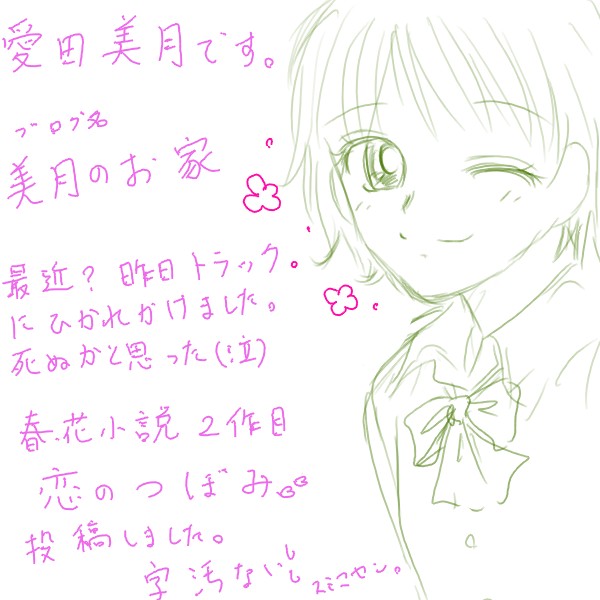 愛田美月です。
ブログ名
美月のお家
最近？昨日トラック。
にひかれかけました。
死ぬかと思った(泣)
春、花小説２作目
恋のつぼみ
投稿しました。
字汚ないし
スミマセン。